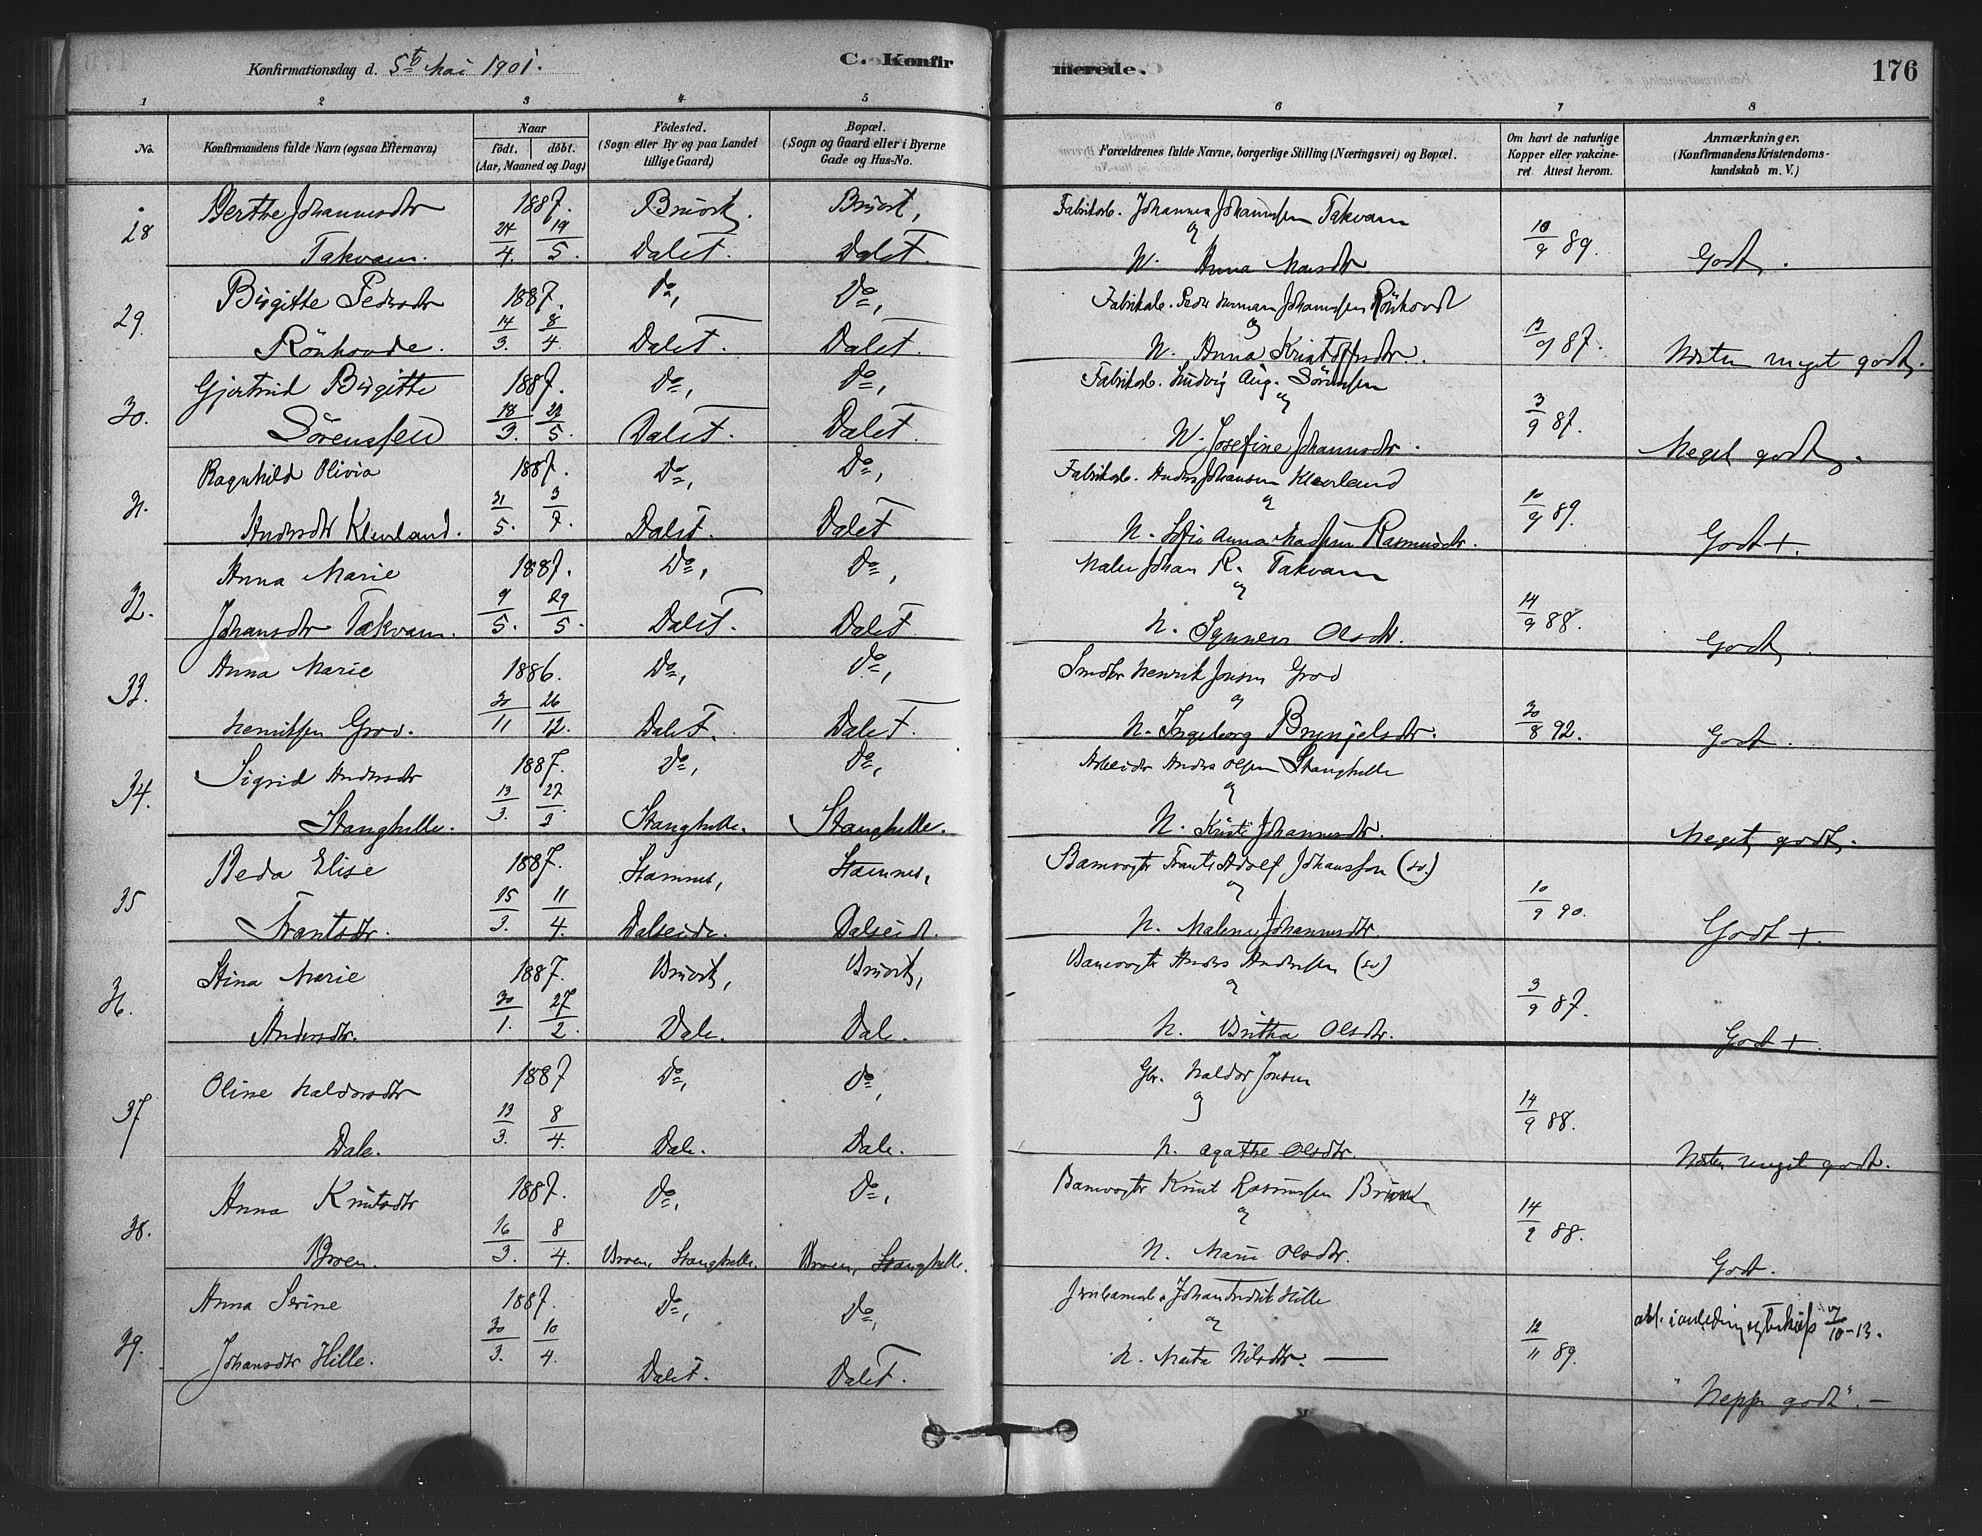 Konfirmationsdag d. 5te Mai 1901.
C. Konfirmerede.
176
1 2 3 4 5 6 7 8
No.
Konfirmandens fulde Navn (ogsaa Efternavn)
Naar
födt. döbt.
(Aar, Maaned og Dag)
Födested.
(Sogn eller By og paa Landet
tillige Gaard)
Bopæl.
(Sogn og Gaard eller i Byerne
Gade og Hus-No.
Forældrenes fulde Navne, borgerlige Stilling (Næringsvei) og Bopæl.
Om havt de naturlige
Kopper eller vakcine-
ret. Attest herom.
Anmærkninger,
(Konfirmandens Kristendoms-
kundskab m. V.)
28 Berthe Johannesdtr 1887. Bruvik, Bruvik, Fabrikarb. Johannes Johannessen Takvam
og
Takvam. 24/4. 19/5. Dalet. Dalet. H. Anna Monsdtr 10/9 89. Godt.
29. Birgitte Pedersdtr 1887. Do, Do, Fabrikarb. Peder Herman Johannessen Rönhovd
og
Rönhovde. 14/3. 8/4. Dalet. Dalet. H. Anna Kristoffersdtr. 13/9 87. Næsten meget godt.
30. Gjertrud Birgitte 1887. Do, Do, Fabrikarb. Ludvig Aug. Sörensen
og
Sörensen 18/3. 22/5. Dalet. Dalet. H. Josefine Johannesdtr. 3/9 87. Meget godt.
31. Ragnhild Olivia 1887. Do, Do, Fabrikarb. Anders Johansen Kleveland
og
Andersdtr Kleveland. 31/5. 3/7. Dalet. Dalet H. Sofie Anna Madsen Rasmusdtr. 10/9 89. Godt +.
32. Anna Marie 1887. Do, Do, Maler Johan R. Takvam
og
Johansdtr Takvam. 9/5. 29/5. Dalet. Dalet H. Synneva Olsdtr. 14/9 88. Godt.
33. Anna Marie 1886. Do, Do, Smed Henrik Jonsen Grov
og
Henriksen Grov. 30/11 26/12. Dalet. Dalet. H. Ingeborg Brynjelsdtr. 30/8 92. Godt.
34. Sigrid Andersdtr 1887. Do, Do, Arbeider Anders Olsen Stanghelle
og
Stanghelle. 13/3. 27/3. Stanghelle. Stanghelle. H. Kristi Johannesdtr. Meget godt.
35 Beda Elise 1887. Stamnes, Stamnes, Banevogter Frants Adolf Johansson (sv.)
og
Frantsdtr. 15/3. 11/4. Dalseide. Dalseid. H. Malene Johannesdtr. 10/9 90. Godt +.
36. Stina Marie 1887. Bruvik, Bruvik, Banevogter Anders Andersen (sv)
og
Andersdtr. 30/1. 27/2. Dale. Dale. H. Britha Olsdtr. 3/9 87. Godt +.
37 Oline Haldorsdtr 1887 Do, Do, Gbr. Haldor Jonsen
og
Dale. 13/3. 8/4. Dale. Dale. H. Agathe Olsdtr. 14/9 88. Næsten meget godt.
38. Anna Knutsdtr 1887. Do, Do, Banevogter Knut Rasmussen
og
Broen. 16/3. 8/4. Broen, Stanghelle. Broen, Stanghelle. H. Marie Olsdtr. 14/9 88. Godt.
39. Anna Serine 1887. Do, Do, Johan Fredrik Hille
og
Johansdtr Hille. 30/3. 10/4. Dalet. Dalet. H. Marta Nilsdtr. — 12/11 89. "Neppe godt". —